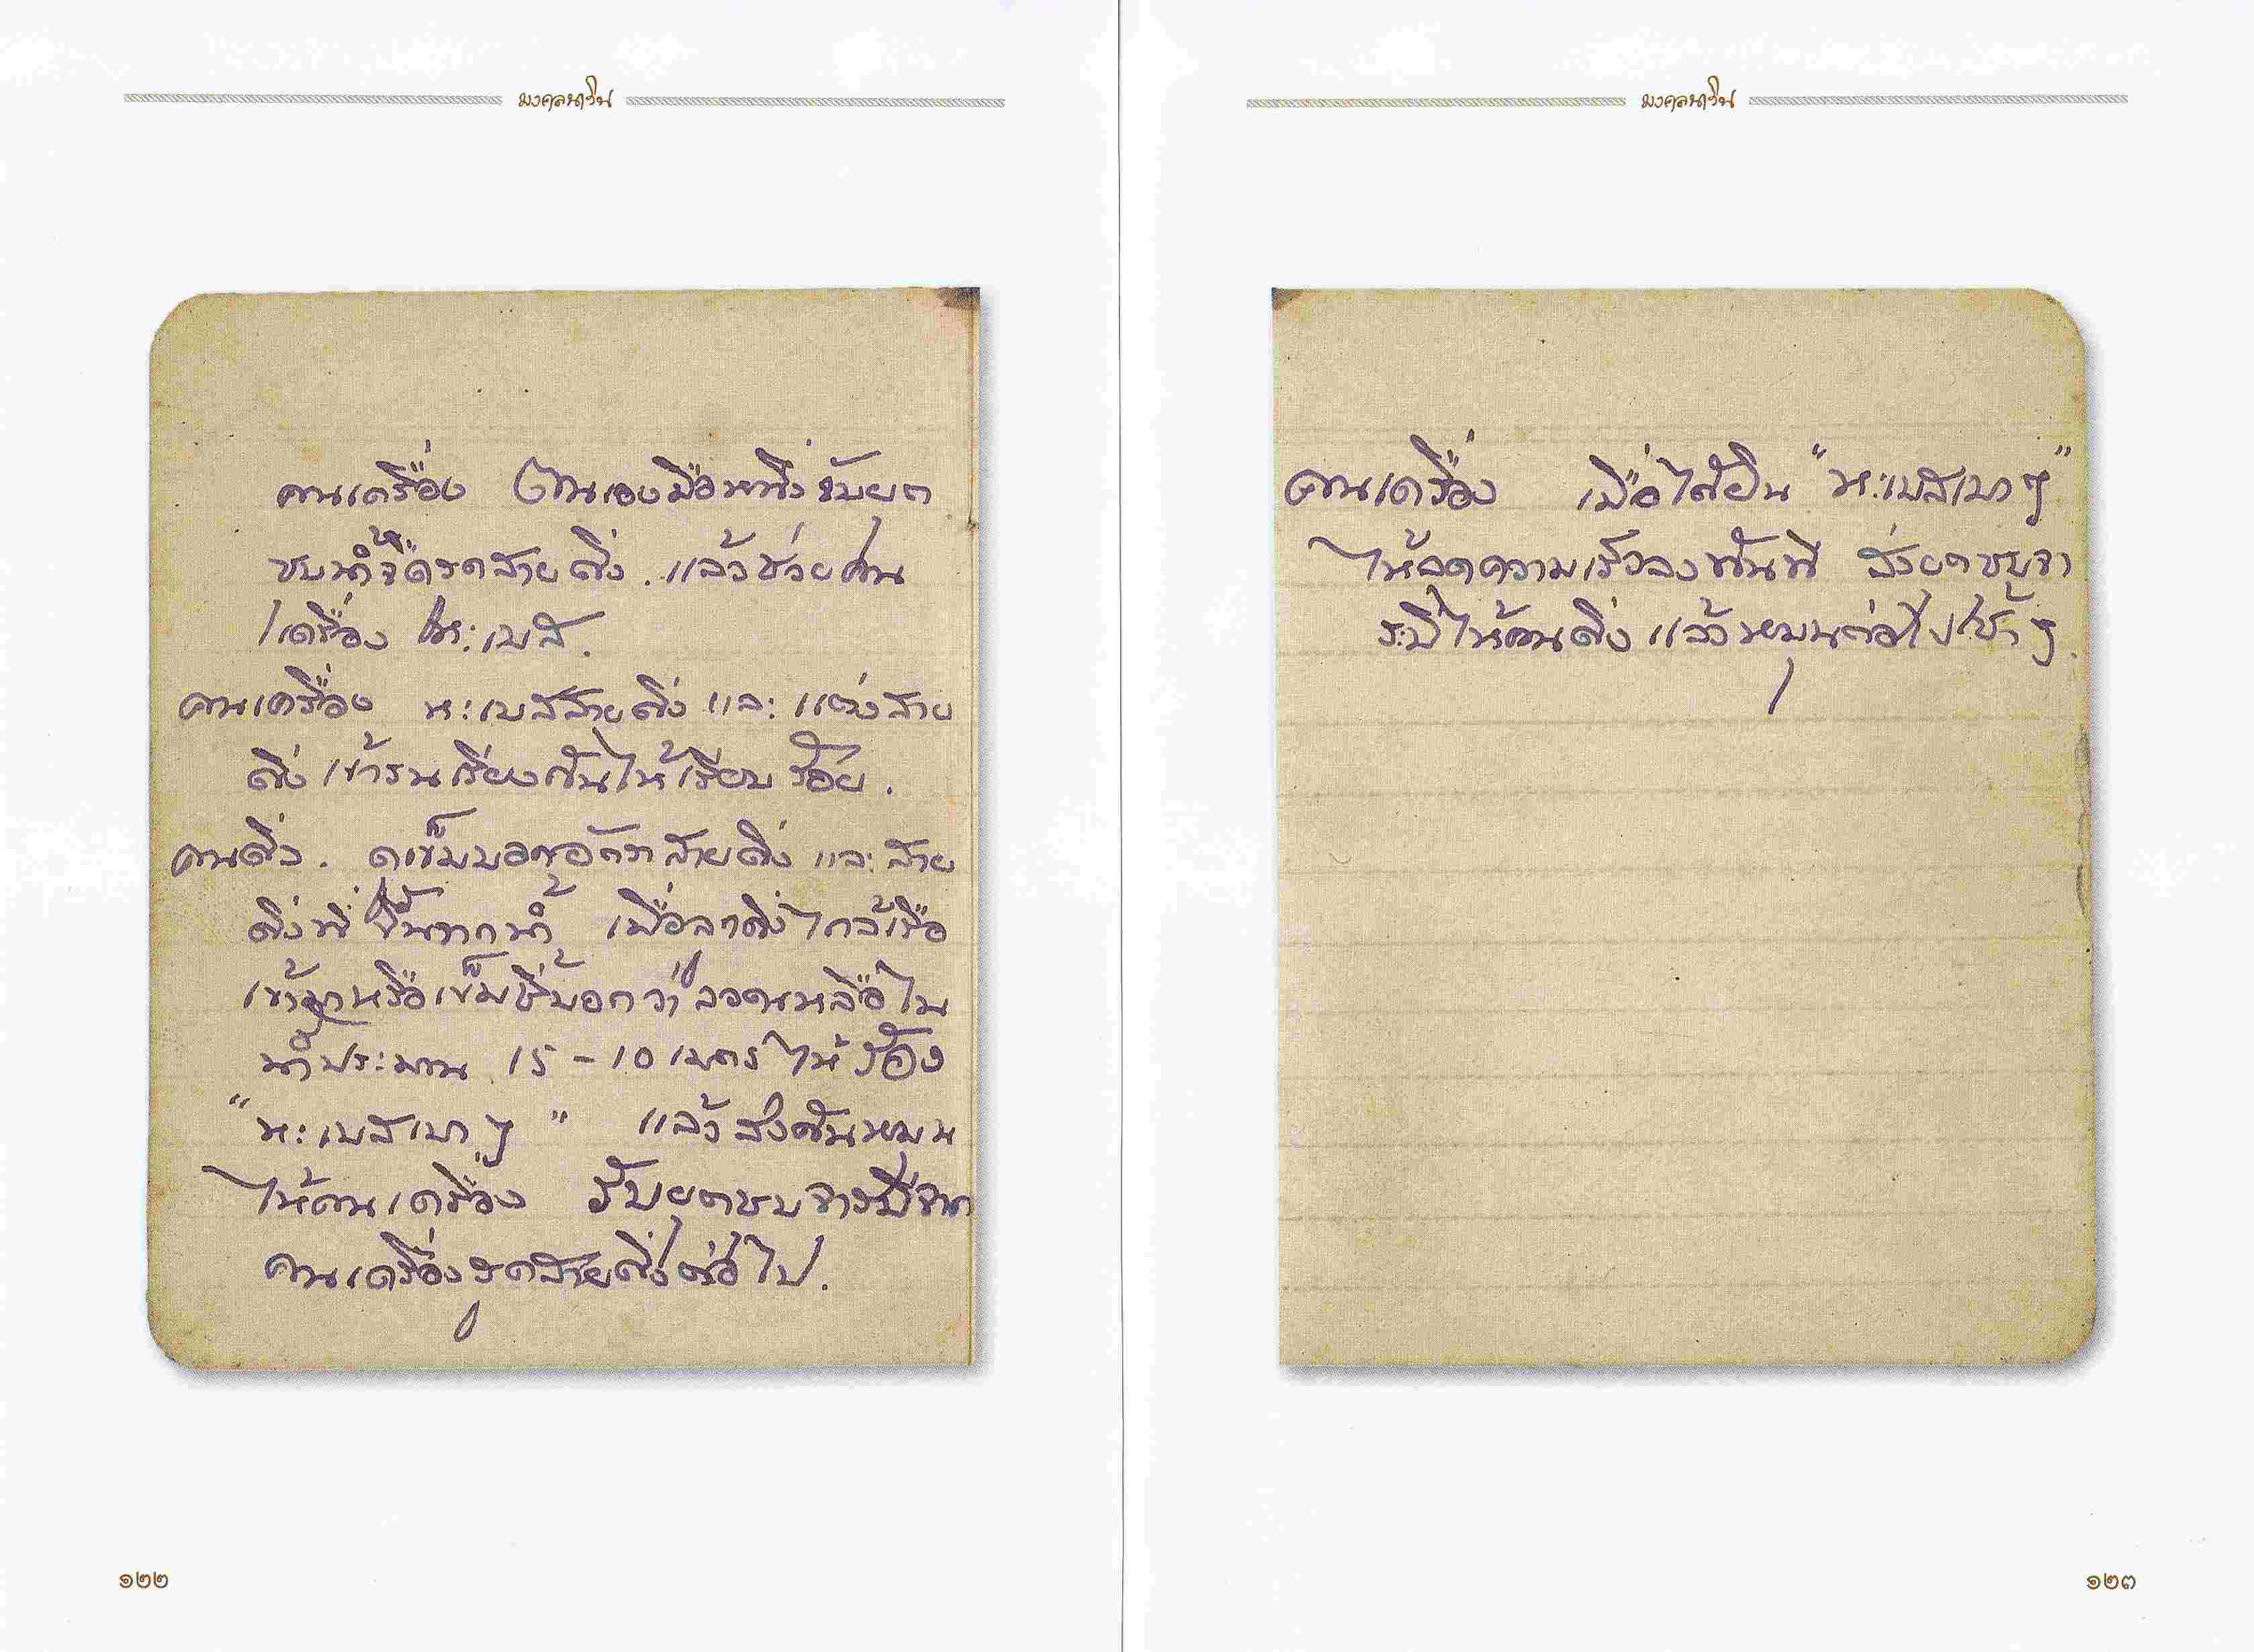 มงคลนาวิน
คนเครื่อง เอามือหนึ่งจับยก
ชุบน้ำ รูดสายดิ่ง. แล้วช่วยคน
เครื่อง หะเบส.
คนเครื่อง หะเบสสายดิ่ง และ แต่งสาย
ดิ่ง เข้ารนเรียงกันให้เรียบร้อย.
คนดิ่ง. ดูเข็มบอก สายดิ่ง และ สาย
ดิ่งที่ขึ้นจากน้ำ เมื่อลูกดิ่งใกล้เรือ
เข้ามาหรือเข็มชี้บอกว่าลวดเหลือใน
น้ำประมาณ 15 - 10 เมตร์ ให้ร้อง
"หะเบสเบา ๆ" แล้วส่งคันหมุน
ให้คนเครื่อง รับยกชุบจารบีจาก
คนเครื่องรูดสายดิ่งต่อไป.
๑๒๒
มงคลนาวิน
คนเครื่อง เมื่อได้ยิน "หะเบสเบา ๆ"
ให้ลดความเร็วลงทันที ส่งยกชุบจา
ระบีให้คนดิ่ง แล้วหมุนต่อไปช้า ๆ.
๑๒๓